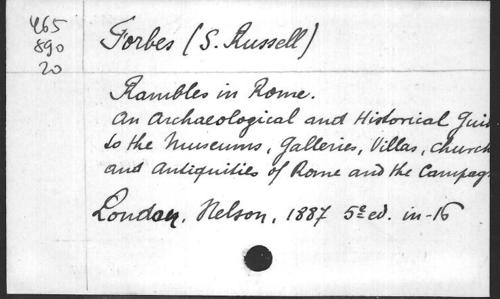 465
890
20
Forbes (S. Russell)
Rambles in Rome.
An Archaeological and Historical Gui
to the Museums, Galleries, Villas, Church
and Antiquities of Rome and the Campag
London, Nelson, 1887 5e ed. in-16